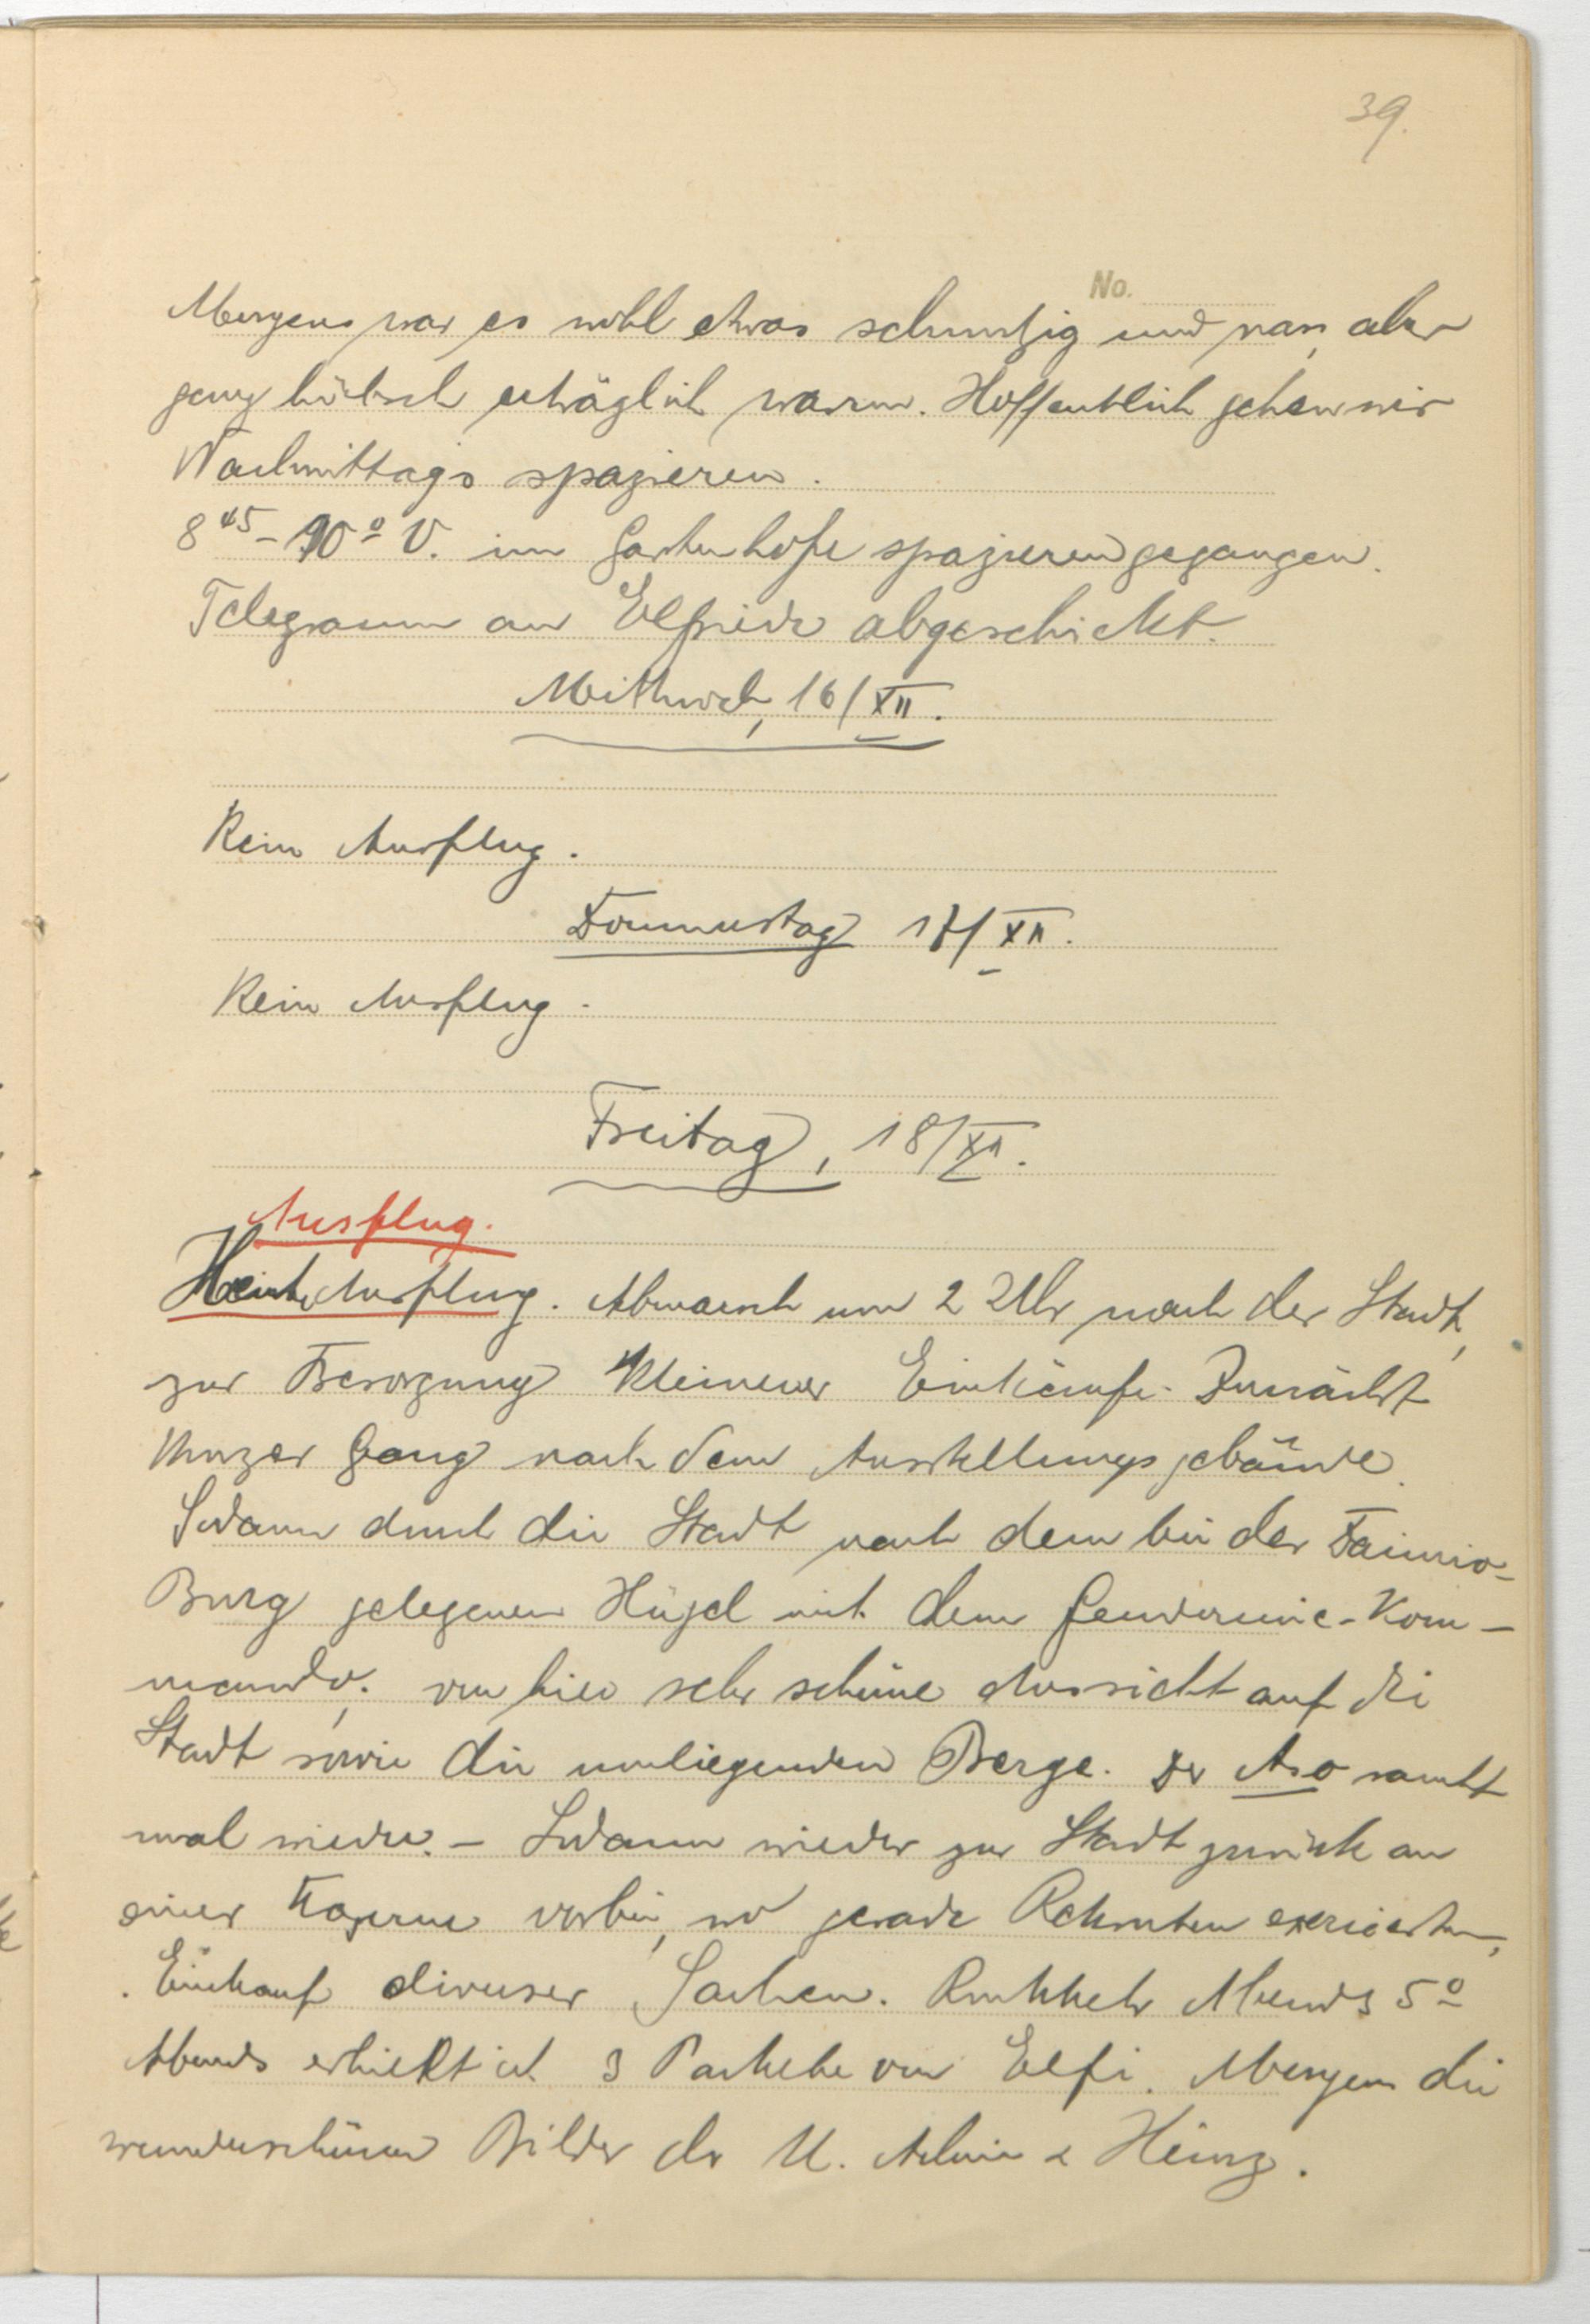 39.
No.
Morgens war es wohl etwas schmutzig und nass, aber
ganz hübsch erträglich warm. Hoffentlich gehen wir
Nachmittags spazieren.
8 45 - 10 º V. im Gartenhofe spazieren gegangen.
Telegramm an Elfriede abgeschickt.
Mittwoch, 16/XII.
Kein Ausflug.
Donnerstag 17/XII.
Kein Ausflug.
Freitag, 18/XII.
Ausflug.
Heute Ausflug. Abmarsch um 2 Uhr nach der Stadt,
zur Besorgung kleinerer Einkäufe. Zunächst
kurzer Gang nach dem Ausstellungsgebäude.
Sodann durch die Stadt nach dem bei der Daimio-
Burg gelegenen Hügel mit dem Gendarmie-Kom-
mando; von hier sehr schöne Aussicht auf die
Stadt sowie die umliegenden Berge. Der Aso raucht
mal wieder. - Sodann wieder zur Stadt zurück an
einer Kaserne vorbei, wo gerade Rekruten exerzierten,
. Einkauf diverser Sachen. Rückkehr Abends 5 º
Abends erhielt ich 3 Packete von Elfi. Morgens die
wunderschönen Bilder der U. & Heinz.